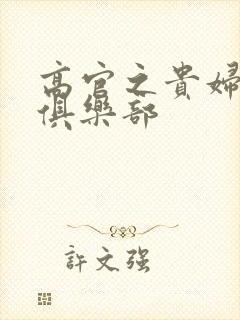 高官之貴婦
俱樂部
許文强